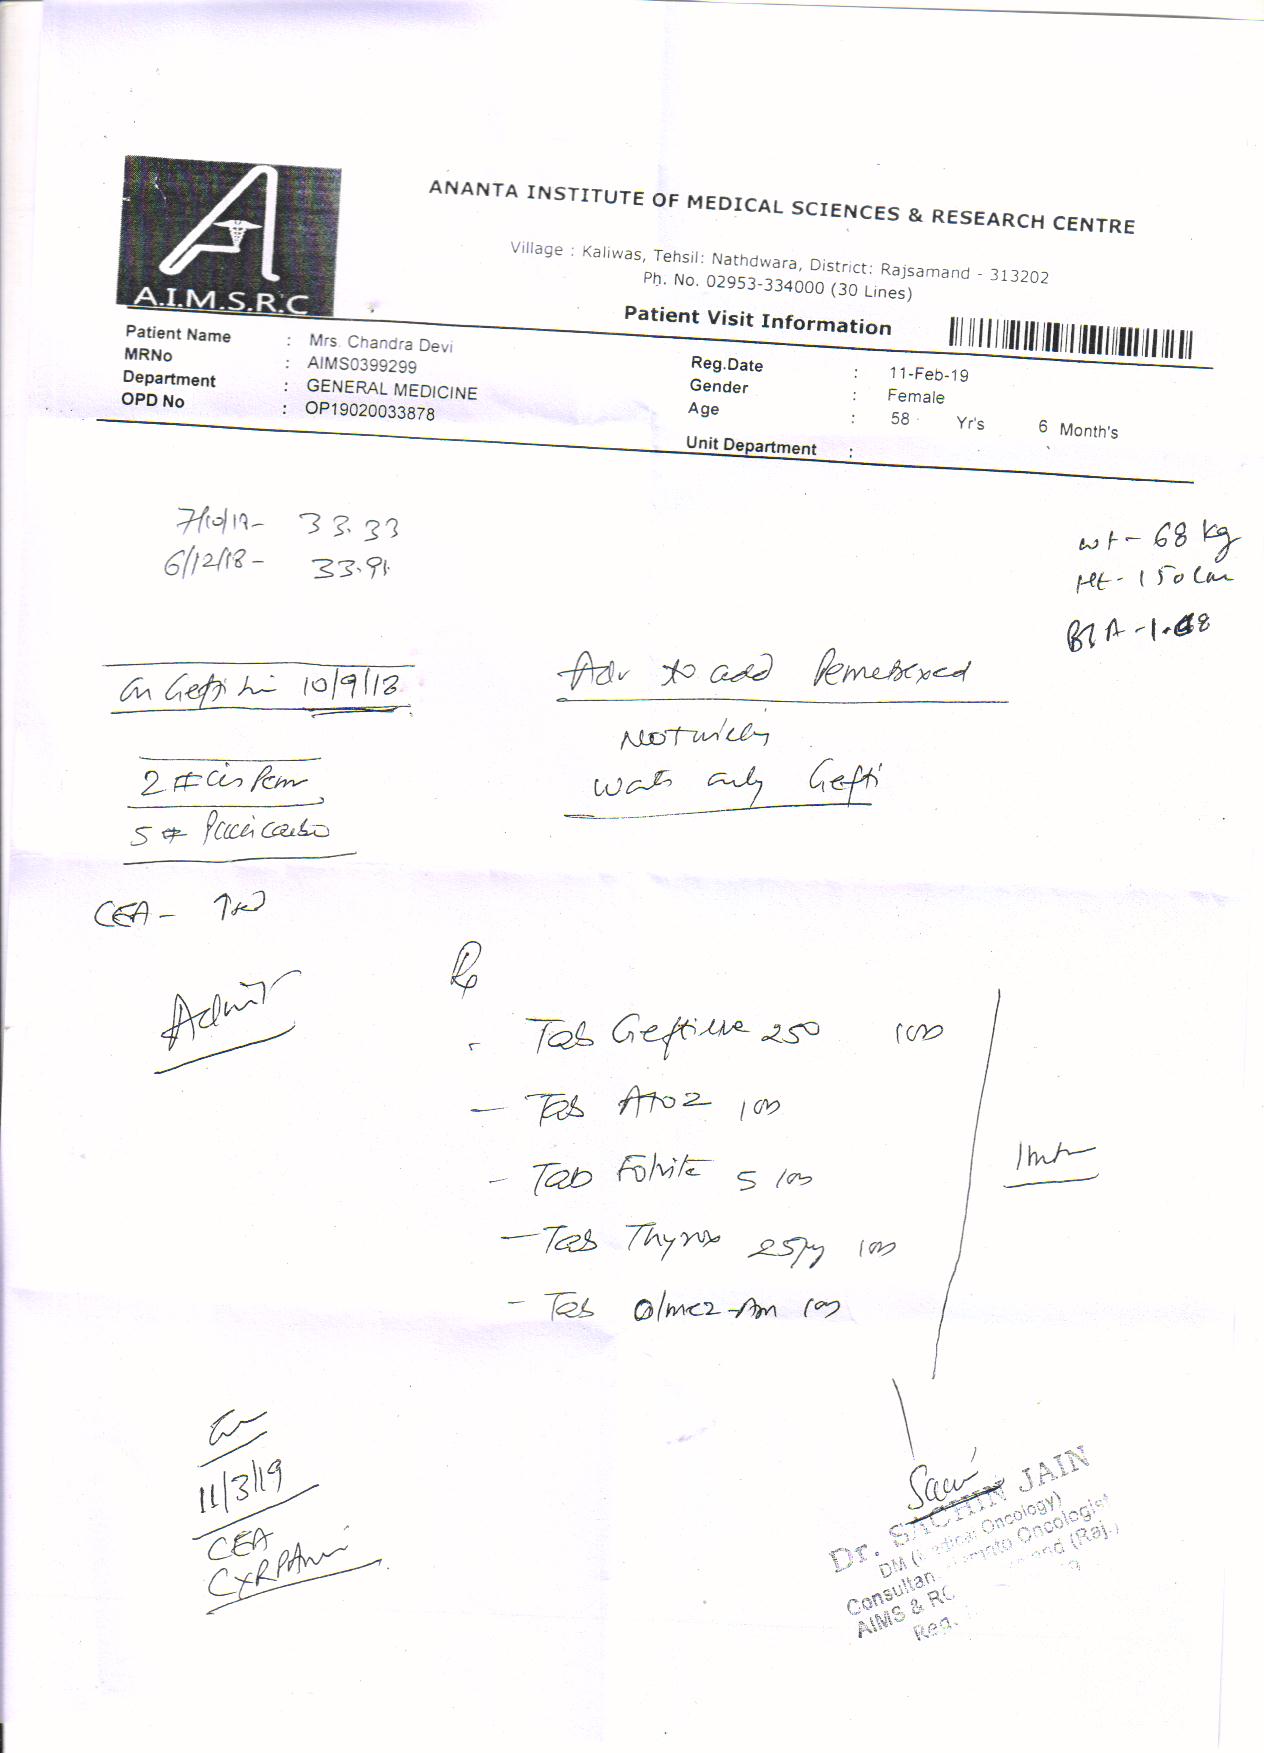 A.I.M.S.R.C
ANANTA INSTITUTE OF MEDICAL SCIENCES & RESEARCH CENTRE
Village : Kaliwas, Tehsil: Nathdwara, District: Rajsamand - 313202
Ph. No. 02953-334000 (30 Lines)
Patient Visit Information
Patient Name : Mrs. Chandra Devi
MRNo : AIMS0399299
Department : GENERAL MEDICINE
OPD No : OP19020033878
Reg.Date : 11-Feb-19
Gender : Female
Age : 58 Yr's 6 Month's
Unit Department :
33.33
6/12/18 - 33.91
wt - 68 kg
Ht - 150 cm
On Gefti 10/9/18
Adv to add Pemetrexed
Not willing
wants only Gefti
2 # Cis Pem
5 # Pacli carbo
CEA -
Admit
Rx
Tab 250 1 OD
- Tab A to Z 1 OD
- Tab Folvite 5 1 OD
- Tab Thyrox 25 µg 1 OD
- Tab Olmez-Am 1 OD
1 mth
11/3/19
CEA
CxR PA
Dr. SACHIN JAIN
DM (Medical Oncology)
AIMS & RC
Reg.